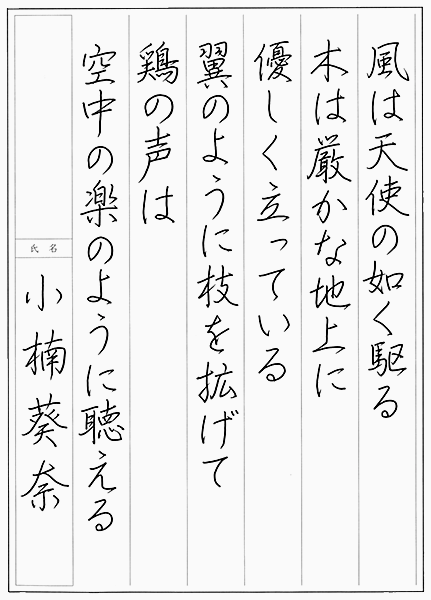 風は天使の如く駆る
木は厳かな地上に
優しく立っている
翼のように枝を拡げて
鶏の声は
空中の楽のように聴える
氏名
小楠葵奈